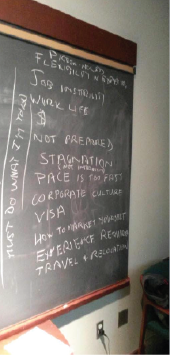 FLEXIBILITY
JOB INSTABILITY
WORK LIFE
$
NOT PREPARED
STAGNATION
PACE IS TOO FAST
CORPORATE CULTURE
VISA
HOW TO MARKET YOURSELF
EXPERIENCE REQUIRED
TRAVEL + RELOCATION
MUST DO WHAT I'M TOLD